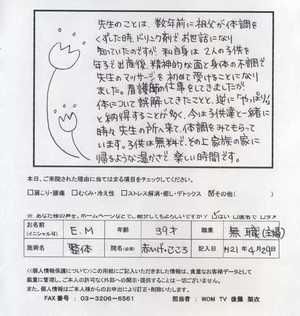 先生のことは、数年前に祖父が体調を
くずした時、ドリンク剤でお世話になり
知っていたのですが、私自身は2人の子供を
年子で出産後、精神的な面と身体の不調で
先生のマッサージを初めて受けることになり
ました。看護師の仕事をしてきましたが
体について誤解してきたことが、逆に「やっぱり」
と納得することが多く、今は子供達と一緒に
時々先生の所へ来て、体調をみてもらって
います。子供は無料で、その上家族の家に
帰るような温かさで楽しい時間です。
本日、ご来院された理由に当てはまる項目をチェックしてください。
□肩こり・腰痛 □むくみ・冷え性 □ストレス解消・癒し・デトックス ☑その他( )
お名前
(イニシャル可)
E.M
年齢
39才
職業
無職(主婦)
施術名
整体
院名(必須)
赤ひげこころ
記入日
H21年4月29日
<<個人情報保護について>>この用紙にご記入いただきました情報は、貴重なお客様データとして
厳重に管理し、ご本人の許可なく外部への開示・提供することは一切ございません。
また、個人情報はご本人様からのお申出により訂正・削除いたします。
FAX番号 : 03-3206-6561
担当者 : WOM TV 後藤 梨衣